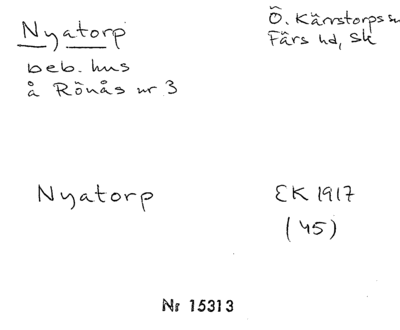 Nyatorp
Ö. Kärrstorps sn
Färs hd, Sk
beb. hus
å Rönås nr 3
Nyatorp
EK 1917
(45)
Nr 15313